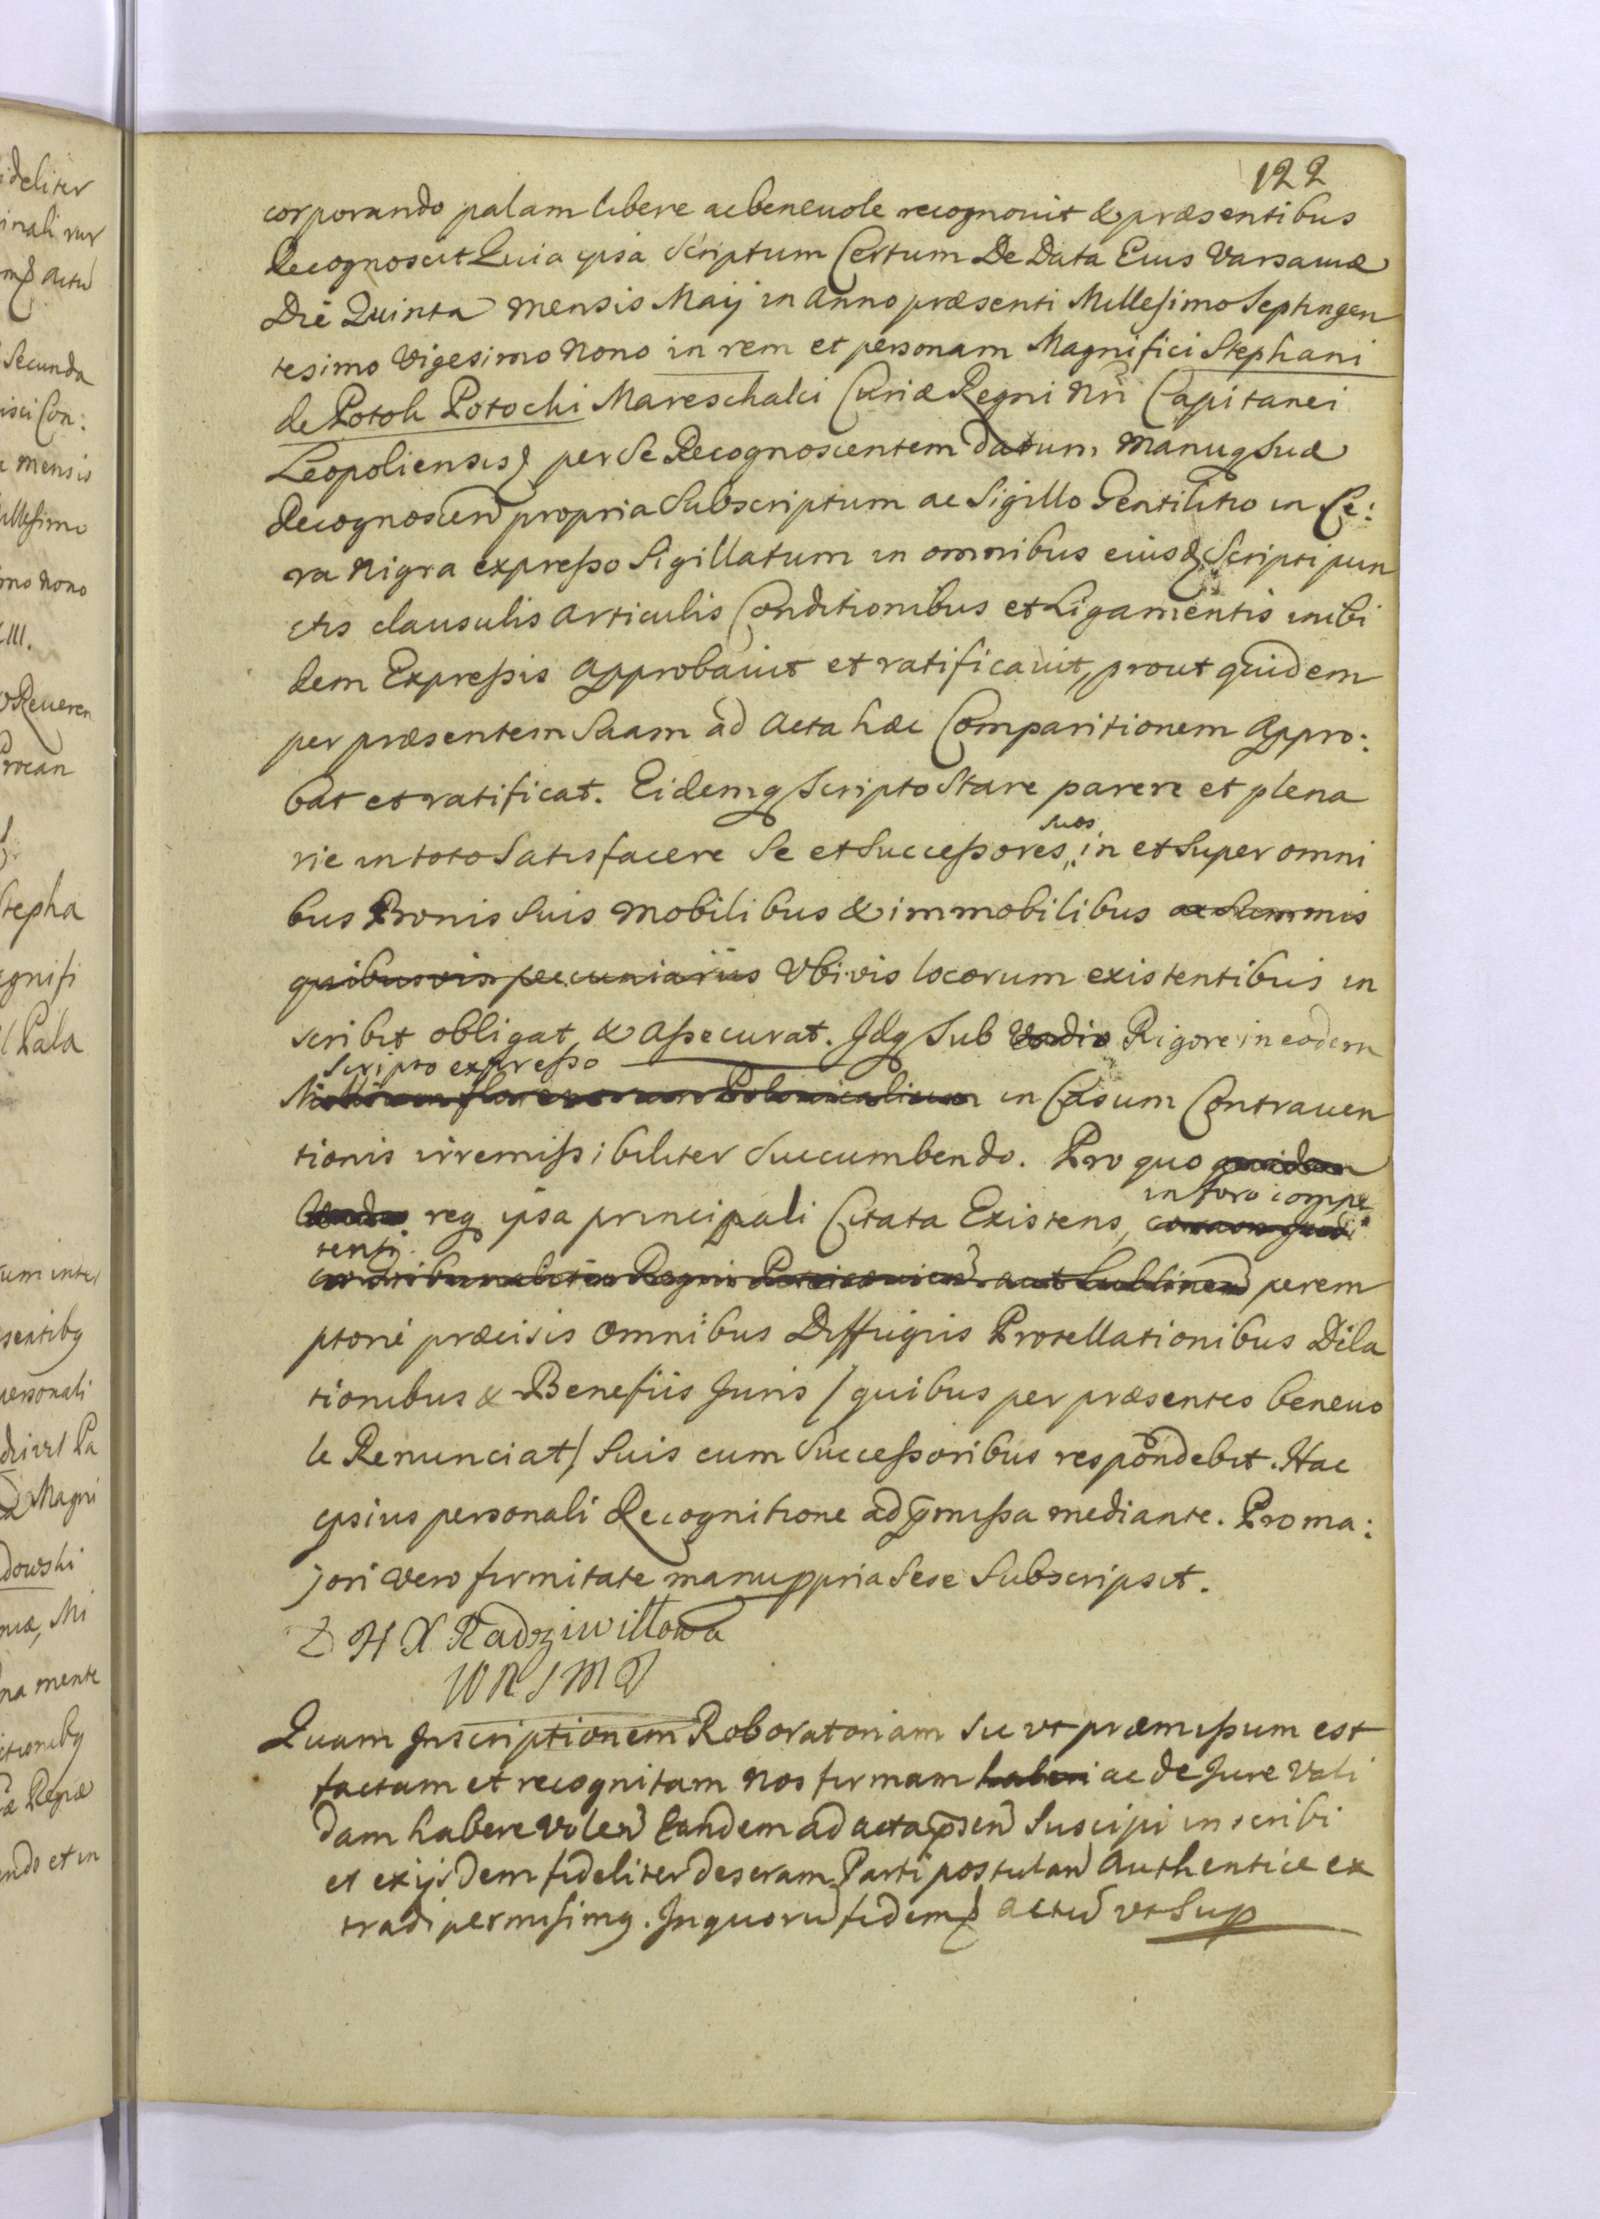 122
corporando palam libere ac beneuole recognouit & præsentibus
Recognoscit Quia ipsa Scriptum Certum De Data Eius Varsauiæ
Die Quinta Mensis Maij in Anno præsenti Millesimo Septingen
tesimo Vigesimo Nono in rem et personam Magnifici Stephani
de Potok Potocki Mareschalci Curiæ Regni Nri Capitanei
Leopoliensis per Se Recognoscentem datum Manuq Suæ
Recognoscen propria Subscriptum ac Sigillo Gentilitio in Ce:
ra Nigra expresso Sigillatum in omnibus eiusd Scripti pun
ctis clausulis Articulis Conditionibus et Ligamentis inibi
dem Expressis Approbauit et ratificauit, prout quidem
per præsentem Suam ad Acta hæc Comparitionem Appro:
bat et ratificat. Eidemq Scripto Stare parere et plena
suos
rie in toto Satisfacere Se et Successores, in et Super omni
bus Bonis Suis Mobilibus & immobilibus ac Summis
quibusvis pecuniariis Vbivis locorum existentibus in
scribit obligat & Assecurat. Idq Sub Vadio Rigore in eodem
Scripto expresso
florenorum Polonicalium in Casum Contrauen
tionis irremissibiliter Succumbendo. Pro quo quidem
in foro compe
Vadio req ipsa principali Citata Existens, coram Judi
tenti
Tribunalitio Regni Petricouien aut Lublinen perem
ptorie præcisis Omnibus Diffugiis Protellationibus Dila
tionibus & Benefiis Juris / quibus per præsentes beneuo
le Renunciat / Suis cum Successoribus respondebit. Hac
ipsius personali Recognitione ad pmissa mediante. Pro ma:
jori Vero firmitate manuppria Sese Subscripsit.
Z H X Radziwiłłowa
W K S M P
Quam Inscriptionem Roboratoriam Sic vt præmissum est
factam et recognitam Nos firmam haberi ac de Jure Vali
dam habere Volen Eandem ad acta psen Suscipi inscribi
et ex ijsdem fideliter descram Parti postulan Authentice ex
tradi permisimq. In quoru fidem Actu vt Sup